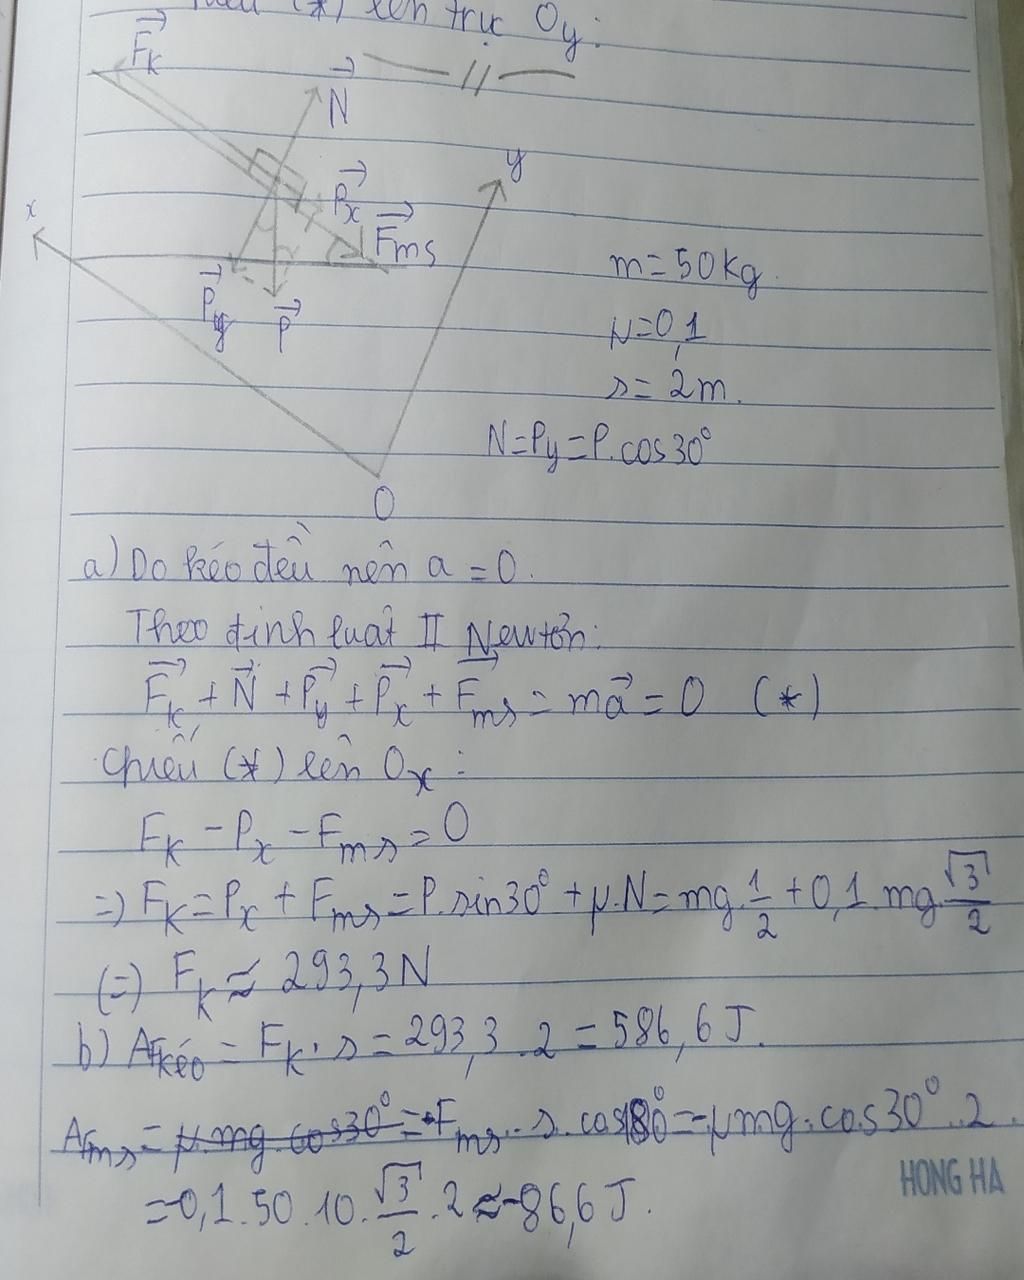 (*) lên trục Oy:
F⃗k
N⃗
y
P⃗x
x
F⃗ms
P⃗y
P⃗
m=50kg.
μ=0,1
s=2m.
N=Py=P.cos30°
O
a) Do kéo đều nên a=0.
Theo định luật II Newton:
F⃗k + N⃗ + P⃗y + P⃗x + F⃗ms = ma⃗ = 0 (*)
Chiếu (*) lên Ox:
Fk - Px - Fms = 0
=> Fk = Px + Fms = P.sin30° + μ.N = mg.1/2 + 0,1.mg.√3/2
(=) Fk ≈ 293,3N
b) AFkéo = Fk.s = 293,3.2 = 586,6J.
AFms = μ.mg.cos30° = Fms.s.cos180° = -μmg.cos30°.2
= -0,1.50.10.√3/2.2 ≈ -86,6J.
HONG HA